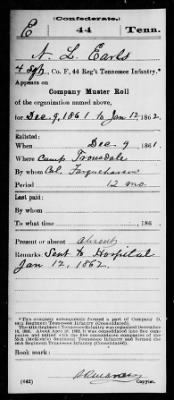 (Confederate.)
E 44 Tenn.
N. L. Earls
4 Sgt, Co. F, 44 Reg't Tennessee Infantry.*
Appears on
Company Muster Roll
of the organization named above,
for Dec. 9, 1861 to Jan 12, 1862.
Enlisted:
When Dec 9, 1861.
Where Camp Trousdale
By whom Col. Farquharson
Period 12 mo.
Last paid:
By whom
To what time , 186 .
Present or absent Absent
Remarks: Sent to Hospital
Jan 12, 1862.
Book mark:
(642) Copyist.